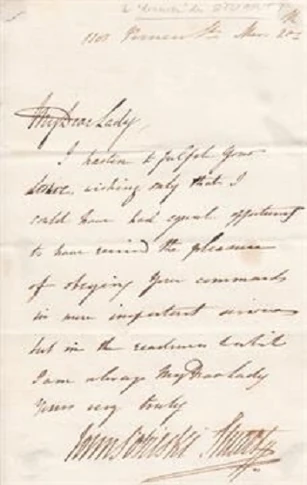 Vernon St. Mar. 20th
My Dear Lady,
I hasten to fulfil your
desire, wishing only that I
could have had equal opportunity
to have the pleasure
of obeying your commands
in more important services
but in the readiness
I am always My Dear Lady
Yours very truly
John Sobieski Stuart